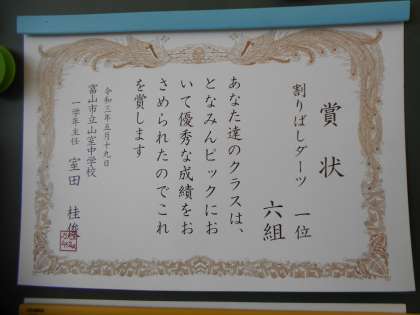 賞状
割りばしダーツ 一位
六組
あなた達のクラスは、
となみんピックにお
いて優秀な成績をお
さめられたのでこれ
を賞します
令和三年五月十九日
富山市立山室中学校
一学年主任 室田 桂